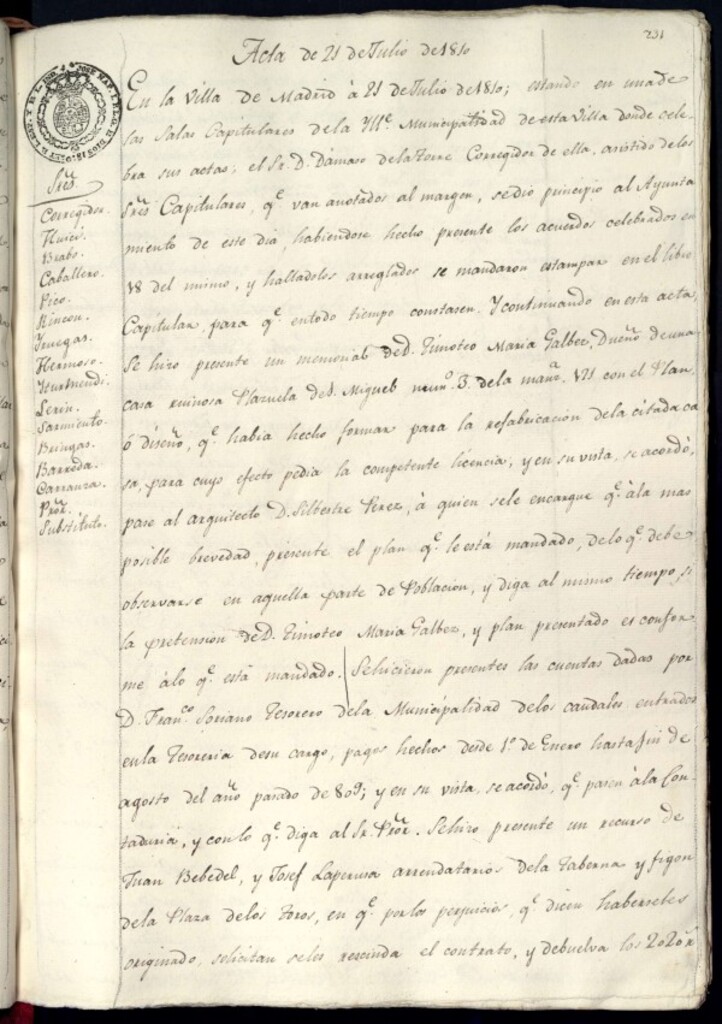 231
Acta de 21 de Julio de 1810
Sres
Corregidor.
Huici.
Brabo.
Caballero.
Pico.
Rincon.
Yruegas.
Hermoso.
Yturmendi.
Lerin.
Sarmiento.
Bringas.
Barreda.
Carranza.
Pror.
Substituto.
En la Villa de Madrid à 21 de Julio de 1810; estando en una de
las Salas Capitulares de la Ylle. Municipalidad de esta Villa donde cele-
bra sus actas; el Sr. D. Dámaso de la Torre Corregidor de ella, asistido de los
Sres Capitulares, qe. van anotados al margen, se dio principio al Ayunta
miento de este dia, habiendose hecho presente los acuerdos celebrados en
18 del mismo, y halladolos arreglados se mandaron estampar en el libro
Capitular, para qe. en todo tiempo constasen. Y continuando en esta acta,
Se hizo presente un memorial de D. Timoteo Maria Galbez, Dueño de una
casa ruinosa Plazuela de S. Miguel numo. 3. de la manza. 171 con el Plan,
ó diseño, qe. habia hecho formar para la refabricacion de la citada ca
sa, para cuyo efecto pedia la competente licencia; y en su vista, se acordó,
pase al arquitecto D. Silbestre Perez, à quien se le encargue qe. à la mas
posible brevedad, presente el plan qe. le está mandado, de lo qe. debe
observarse en aquella parte de Poblacion, y diga al mismo tiempo, si
la pretension de D. Timoteo Maria Galbez, y plan presentado es confor
me à lo qe. está mandado. Se hicieron presentes las cuentas dadas por
D. Franco. Soriano Tesorero de la Municipalidad de los caudales entrados
en la Tesoreria de su cargo, pagos hechos desde 1º. de Enero hasta fin de
agosto del año pasado de 809; y en su vista, se acordó, qe. pasen à la Con
taduria, y con lo qe. diga al Sr. Pror. Se hizo presente un recurso de
Juan Bebedel, y Josef Laperusa arrendatarios de la Taberna y figon
de la Plaza de los Toros, en qe. por los perjuicios, qe. dicen haberseles
originado, solicitan se les rescinda el contrato, y debuelva los 2020 r